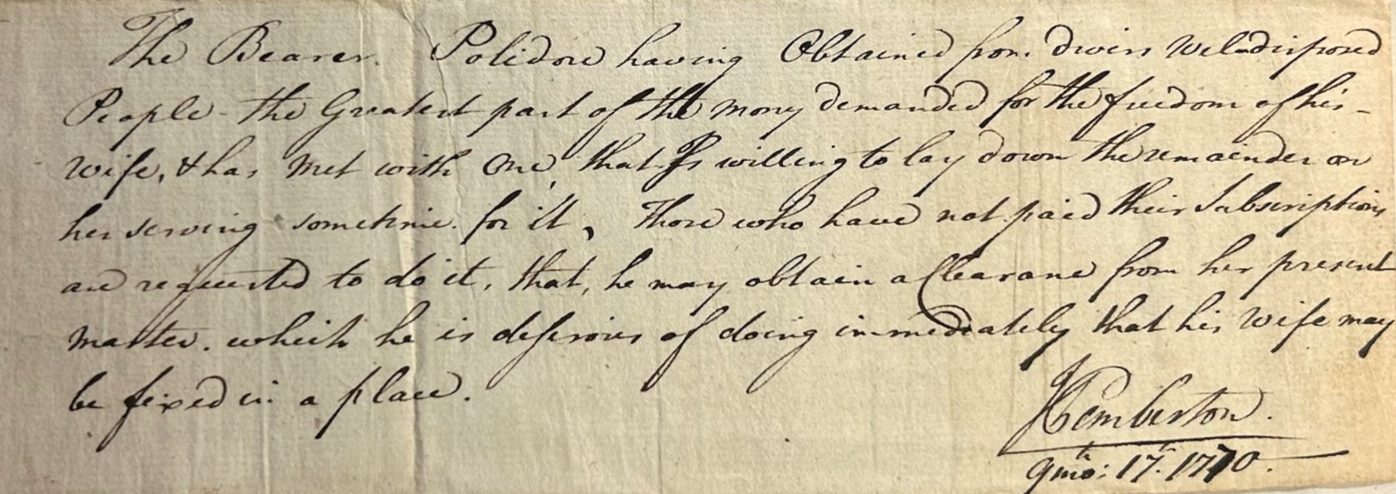 The Bearer. Polidore having Obtained from divers Weladisposed
People - the Greatest part of the mony demanded for the freedom of his -
Wife, & has Met with One, that Is willing to lay down the remainder on
her serving sometime. for it, Those who have not paid their Subscriptions
are requested to do it, that, he may obtain a Clearance from her present
Master. which he is desirous of doing immediately that his Wife may
be fixed in a place.
J Pemberton.
9th mo: 17th. 1770.